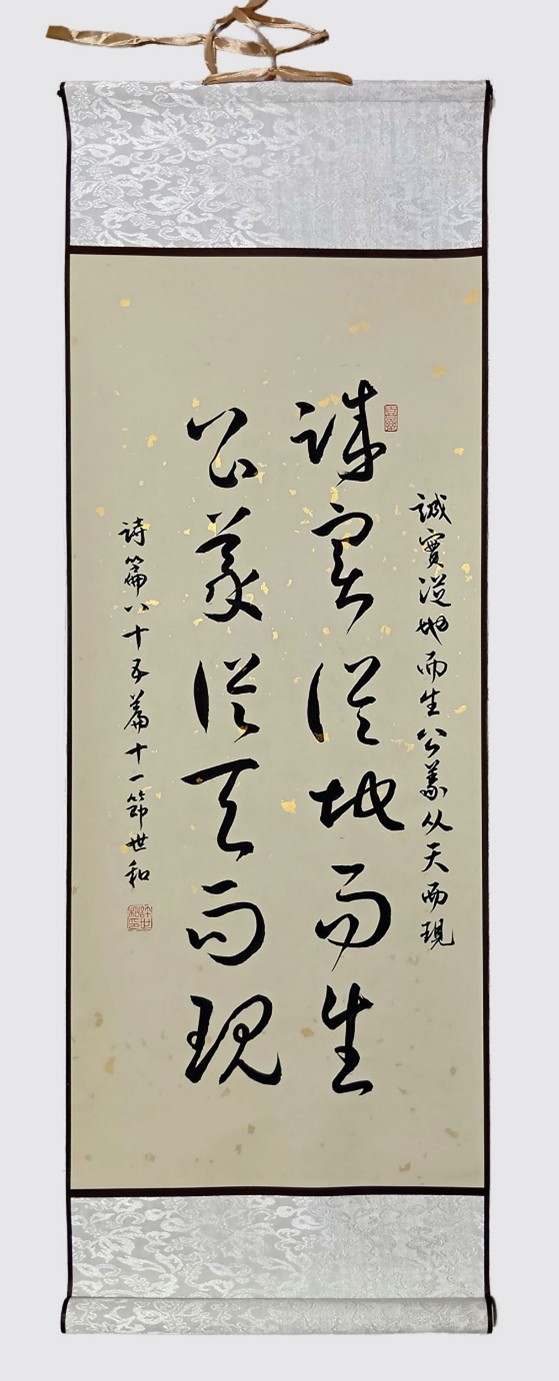 誠實從地而生公義从天而現
誠實從地而生
公義從天而現
詩篇八十五篇十一節世和
許世和印